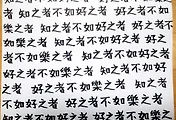 知之者不如好之者 好之者不如
樂之者 知之者不如好之者 好之
者不如樂之者 知之者不如好之者
好之者不如樂之者 知之者不如
好之者 好之者不如樂之者 知之
者不如好之者 好之者不如樂之者
知之者不如好之者 好之者不如